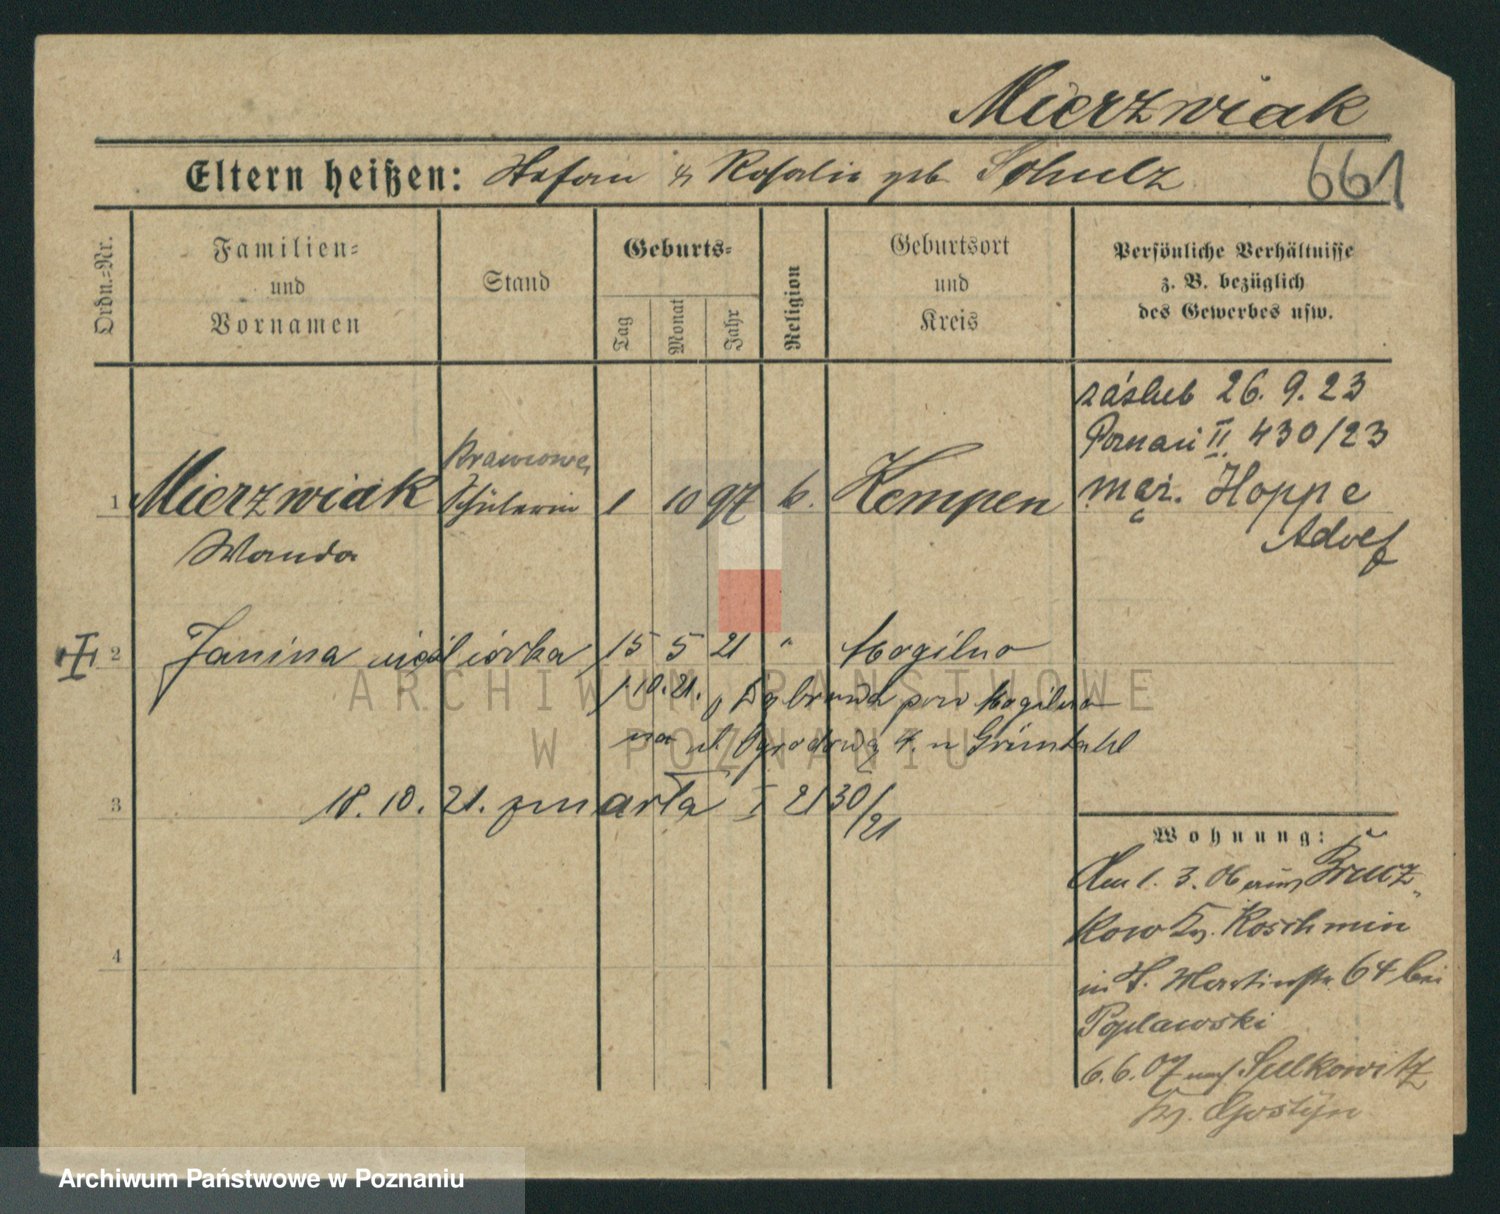 Mierzwiak
Eltern heißen: Stefan & Rosalie geb. Schulz
661
Ordn.-Nr.
Familien-
und
Vornamen
Stand
Geburts-
Tag
Monat
Jahr
Religion
Geburtsort
und
Kreis
Persönliche Verhältnisse
z. B. bezüglich
des Gewerbes usw.
záslub 26. 9. 23
Poznań II 430/23
męż. Hoppe
Adolf
Krawcowa
1 Mierzwiak Schülerin 1 10 97 k. Kempen
Wanda
2 Janina córka 15 5 21 " Mogilno
1.10.21. z Dąbrówka pow Mogilno
na ul Ogrodową 4. Gründahl
3 18. 10. 21. zmarła I 2130/21
4
Wohnung:
Am 1. 3. 06 aus Brucz-
kow Kr. Koschmin
in St. Martinstr 64 bei
Poplawski
6. 6. 07 nach Sulkowitz
Kr. Gostyn
ARCHIWUM PAŃSTWOWE
W POZNANIU
Archiwum Państwowe w Poznaniu